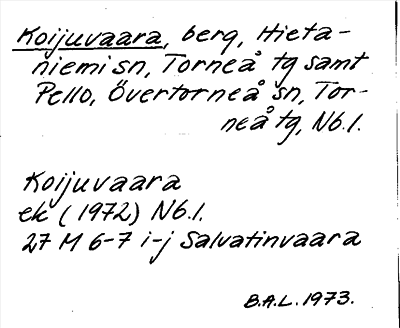 Koijuvaara, berg, Hieta-
niemi sn, Torneå tg samt
Pello, Övertorneå sn, Tor-
neå tg, Nb.l.
Koijuvaara
ek (1972) Nb.l.
27 M 6-7 i-j Salvatinvaara
B.A.L. 1973.